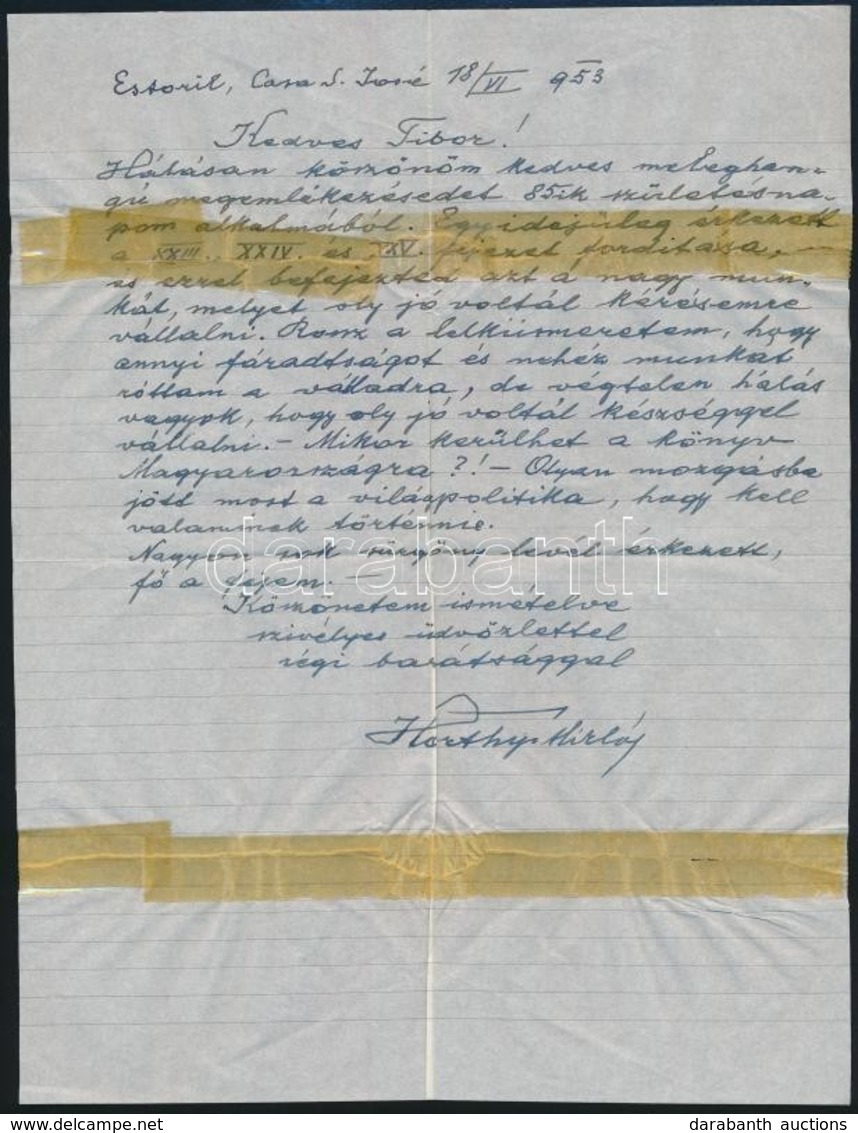 Estoril, Casa S. José 18/VI 953
Kedves Tibor!
Hálásan köszönöm kedves meleghan-
gú megemlékezésedet 85ik születésna-
pom alkalmából. Egyidejüleg érkezett
a XXIII., XXIV. és XXV. fejezet forditása, —
és ezzel befejezted azt a nagy mun-
kát, melyet oly jó voltál kérésemre
vállalni. Rossz a lelkiismeretem, hogy
annyi fáradtságot és nehéz munkát
róttam a válladra, de végtelen hálás
vagyok, hogy oly jó voltál készséggel
vállalni. — Mikor kerülhet a könyv
Magyarországra?! — Olyan mozgásba
jött most a világpolitika, hogy kell
valaminek történnie.
Nagyon sok sürgöny levél érkezett,
fő a fejem. —
Köszönetem ismételve
szivélyes üdvözlettel
régi barátsággal
Horthy Miklós
darabanth
www.delcampe.net
darabanth auctions